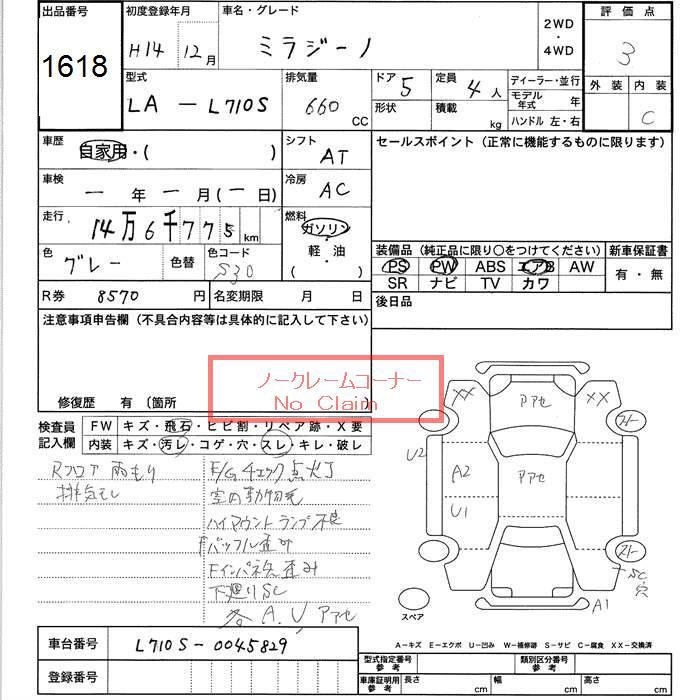 出品番号
1618
初度登録年月
H14年 12月
車名・グレード
ミラジーノ
2WD
・
4WD
評価点
3
外装 内装
C
型式
LA － L710S
排気量
660 CC
ドア 5
形状
定員 4人
積載 kg
ディーラー・並行
モデル年式 年
ハンドル 左・右
車歴
自家用・( )
シフト
AT
車検
－ 年 － 月(－ 日)
冷房
AC
走行
14万6千775 km
燃料
ガソリン
・
軽・油
( )
色
グレー
色替
色コード
S30
R券 8570 円
名変期限 月 日
セールスポイント (正常に機能するものに限ります)
装備品 (純正品に限り○をつけてください)
PS PW ABS エアB AW
SR ナビ TV カワ
新車保証書
有・無
後日品
注意事項申告欄 (不具合内容等は具体的に記入して下さい)
修復歴 有 (箇所
ノークレームコーナー
No Claim
検査員
記入欄
FW キズ・飛石・ヒビ割・リペア跡・X要
内装 キズ・汚レ・コゲ・穴・スレ・キレ・破レ
Rフロア 雨もり
排気モレ
E/G チェック点灯
室内動物毛
ハイマウントランプ不良
Fバッフル歪み
Fインパネ先歪み
下廻りSC
各 A.U アアセ
XX
アアセ
XX
U2
A2
アアセ
U1
SC
穴
A1
スペア
A－キズ E－エクボ U－凹み W－補修跡 S－サビ C－腐食 XX－交換済
車台番号
L710S-0045829
登録番号
型式指定番号
参考
類別区分番号
参考
車庫証明用
参考
長さ cm
幅 cm
高さ cm